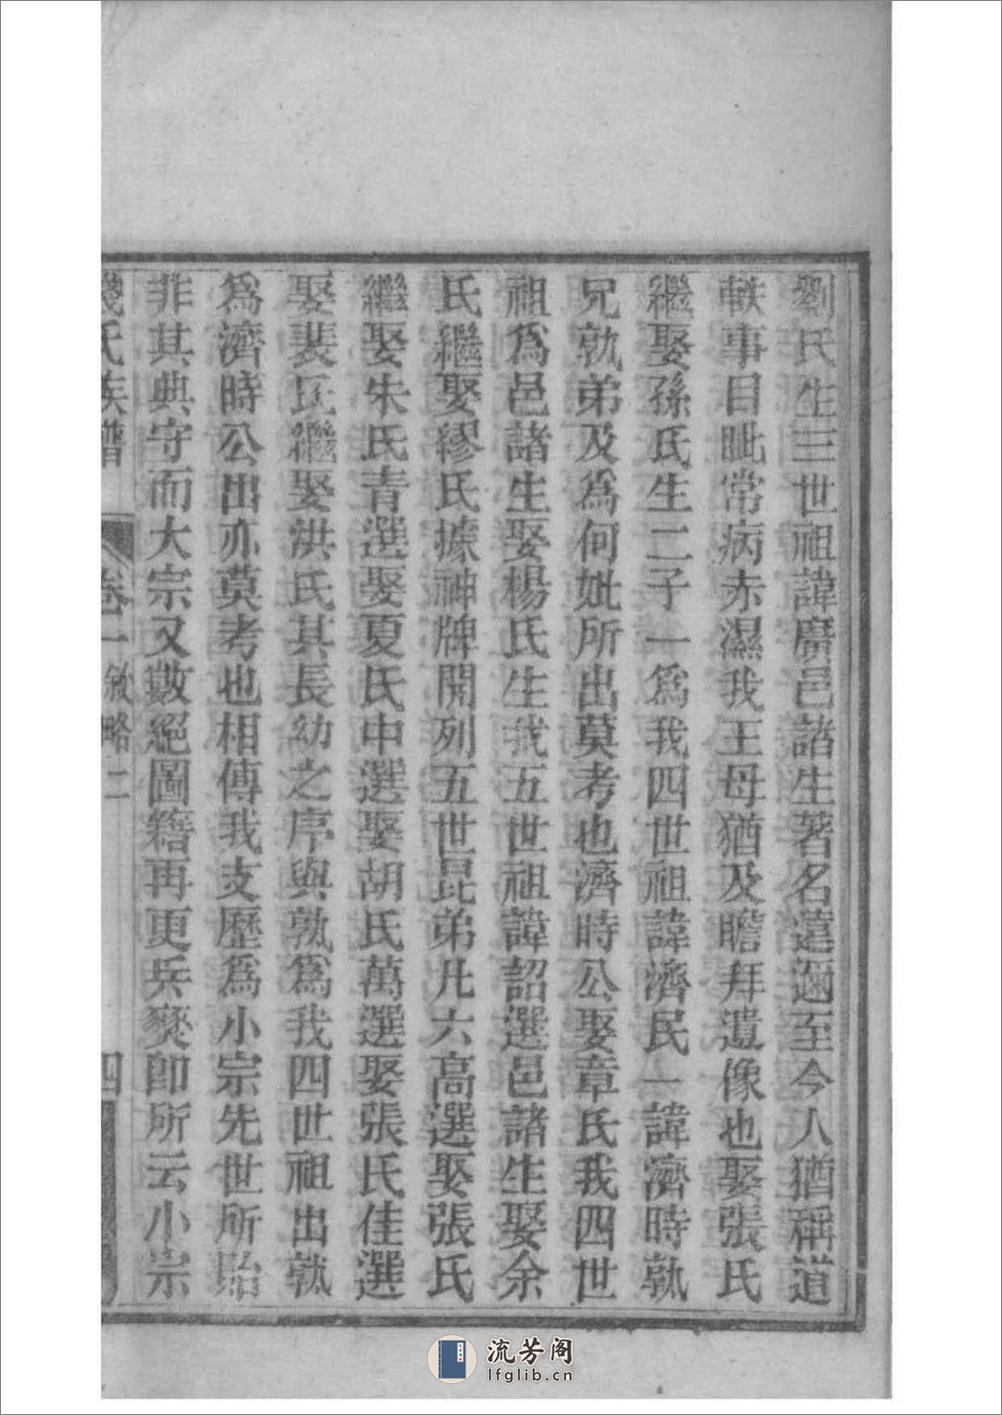 劉氏生三世祖諱廣邑諸生著名遠邇至今人猶稱道
軼事目眦常病赤濕我王母猶及瞻拜遺像也娶張氏
繼娶孫氏生二子一爲我四世祖諱濟民一諱濟時孰
兄孰弟及爲何妣所出莫考也濟時公娶章氏我四世
祖爲邑諸生娶楊氏生我五世祖諱詔選邑諸生娶余
氏繼娶繆氏據神牌開列五世昆弟凡六高選娶張氏
繼娶朱氏青選娶夏氏中選娶胡氏萬選娶張氏佳選
娶裴氏繼娶洪氏其長幼之序與孰爲我四世祖出孰
爲濟時公出亦莫考也相傳我支歷爲小宗先世所貽
非其典守而大宗又數絕圖籍再更兵燹即所云小宗
氏族譜 卷一 敘略二 四
流芳阁
lfglib.cn